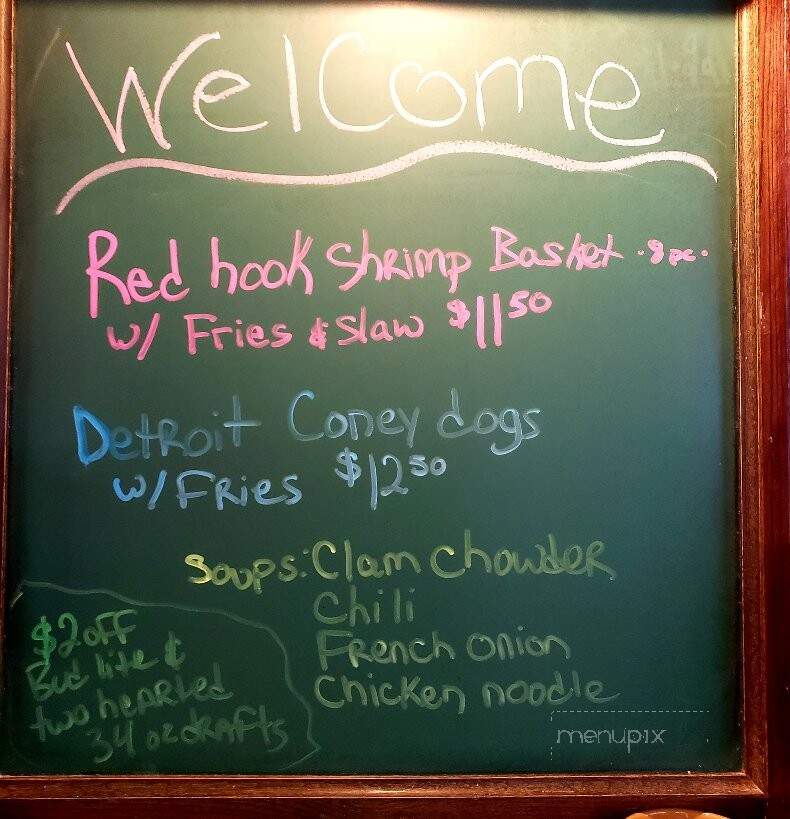 Welcome
Red hook Shrimp Basket .8 pc.
w/ Fries & Slaw $11 50
Detroit Coney dogs
w/ Fries $12 50
Soups: Clam Chowder
Chili
French Onion
Chicken noodle
$2 off
Bud lite &
two hearted
34 oz drafts
menupix